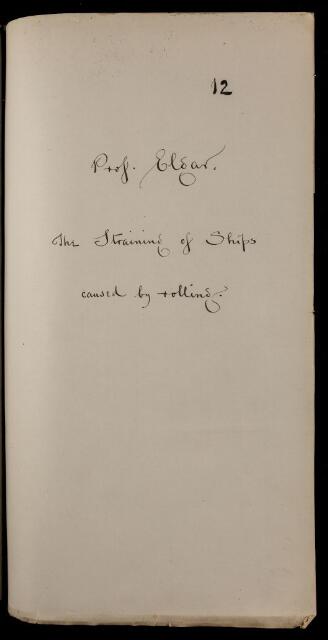 12
Prof. Elgar.
The Straining of Ships
caused by rolling.